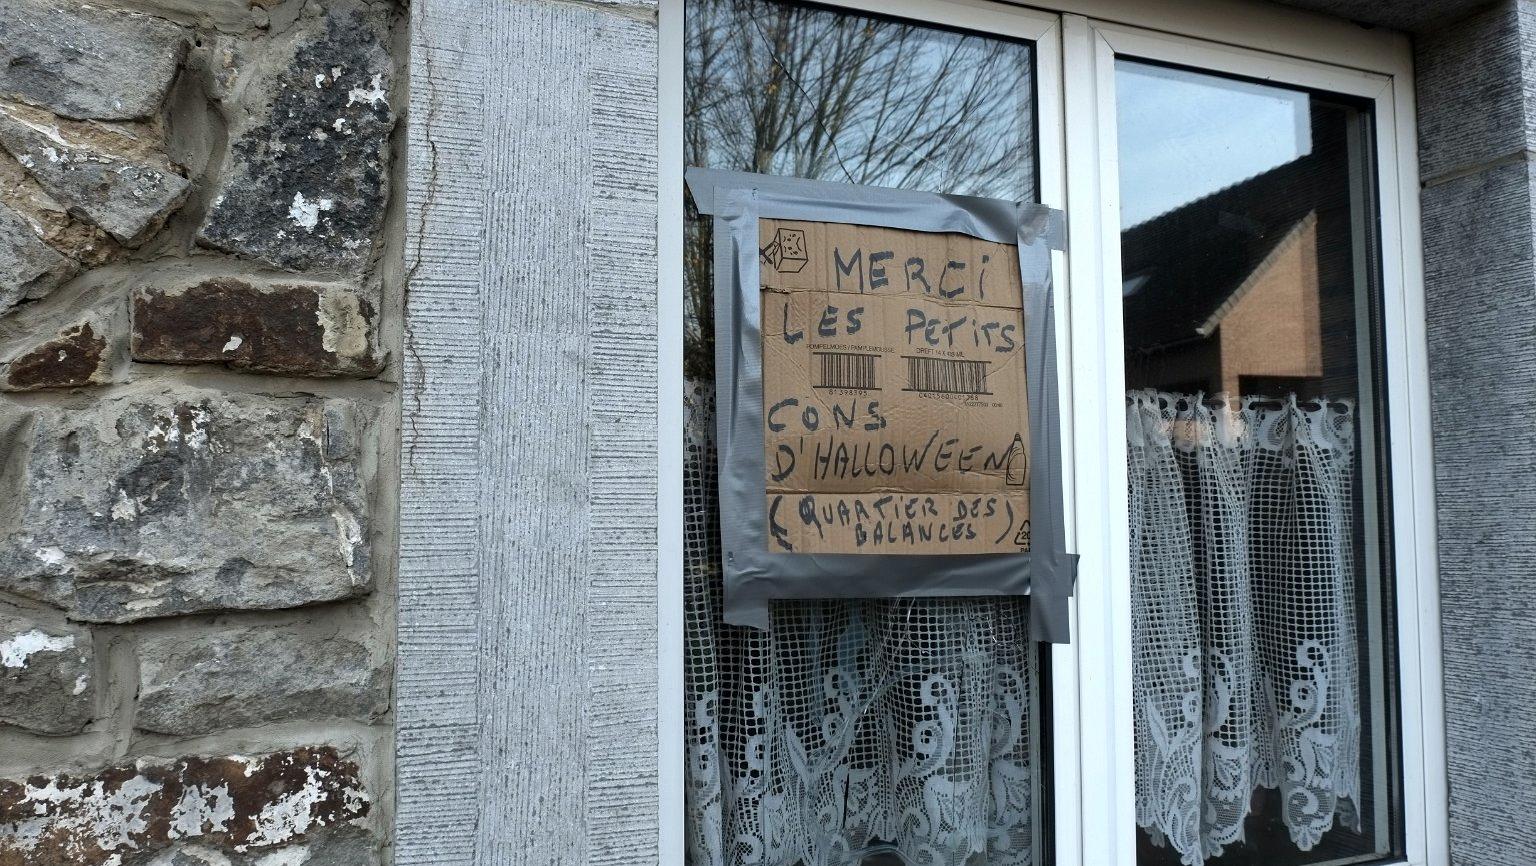 MERCi
LES PETITS
POMPELMOES / PAMPLEMOUSSE
DREFT 14 X 435 ML
81398395
CONS
D'HALLOWEEN
(QUARTIER DES
BALANCES)